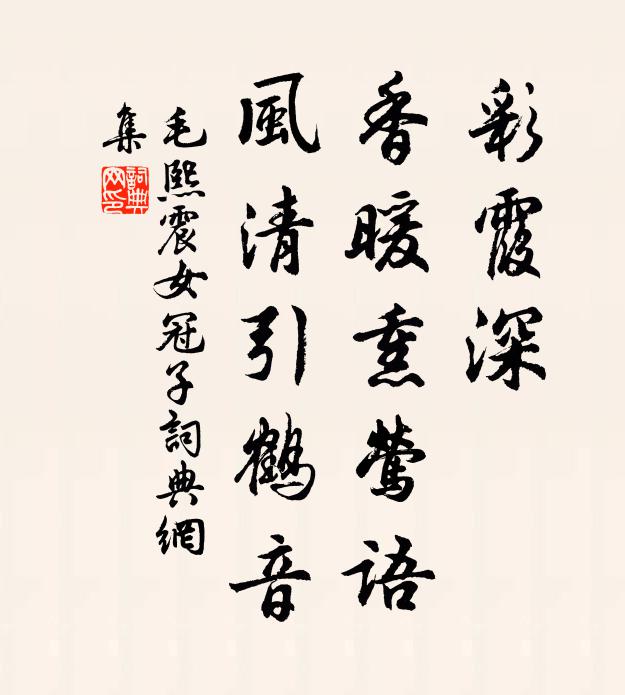 彩霞深
香暖熏鶯語
風清引鶴音
毛熙震女冠子詞典網
集
詞典
网印